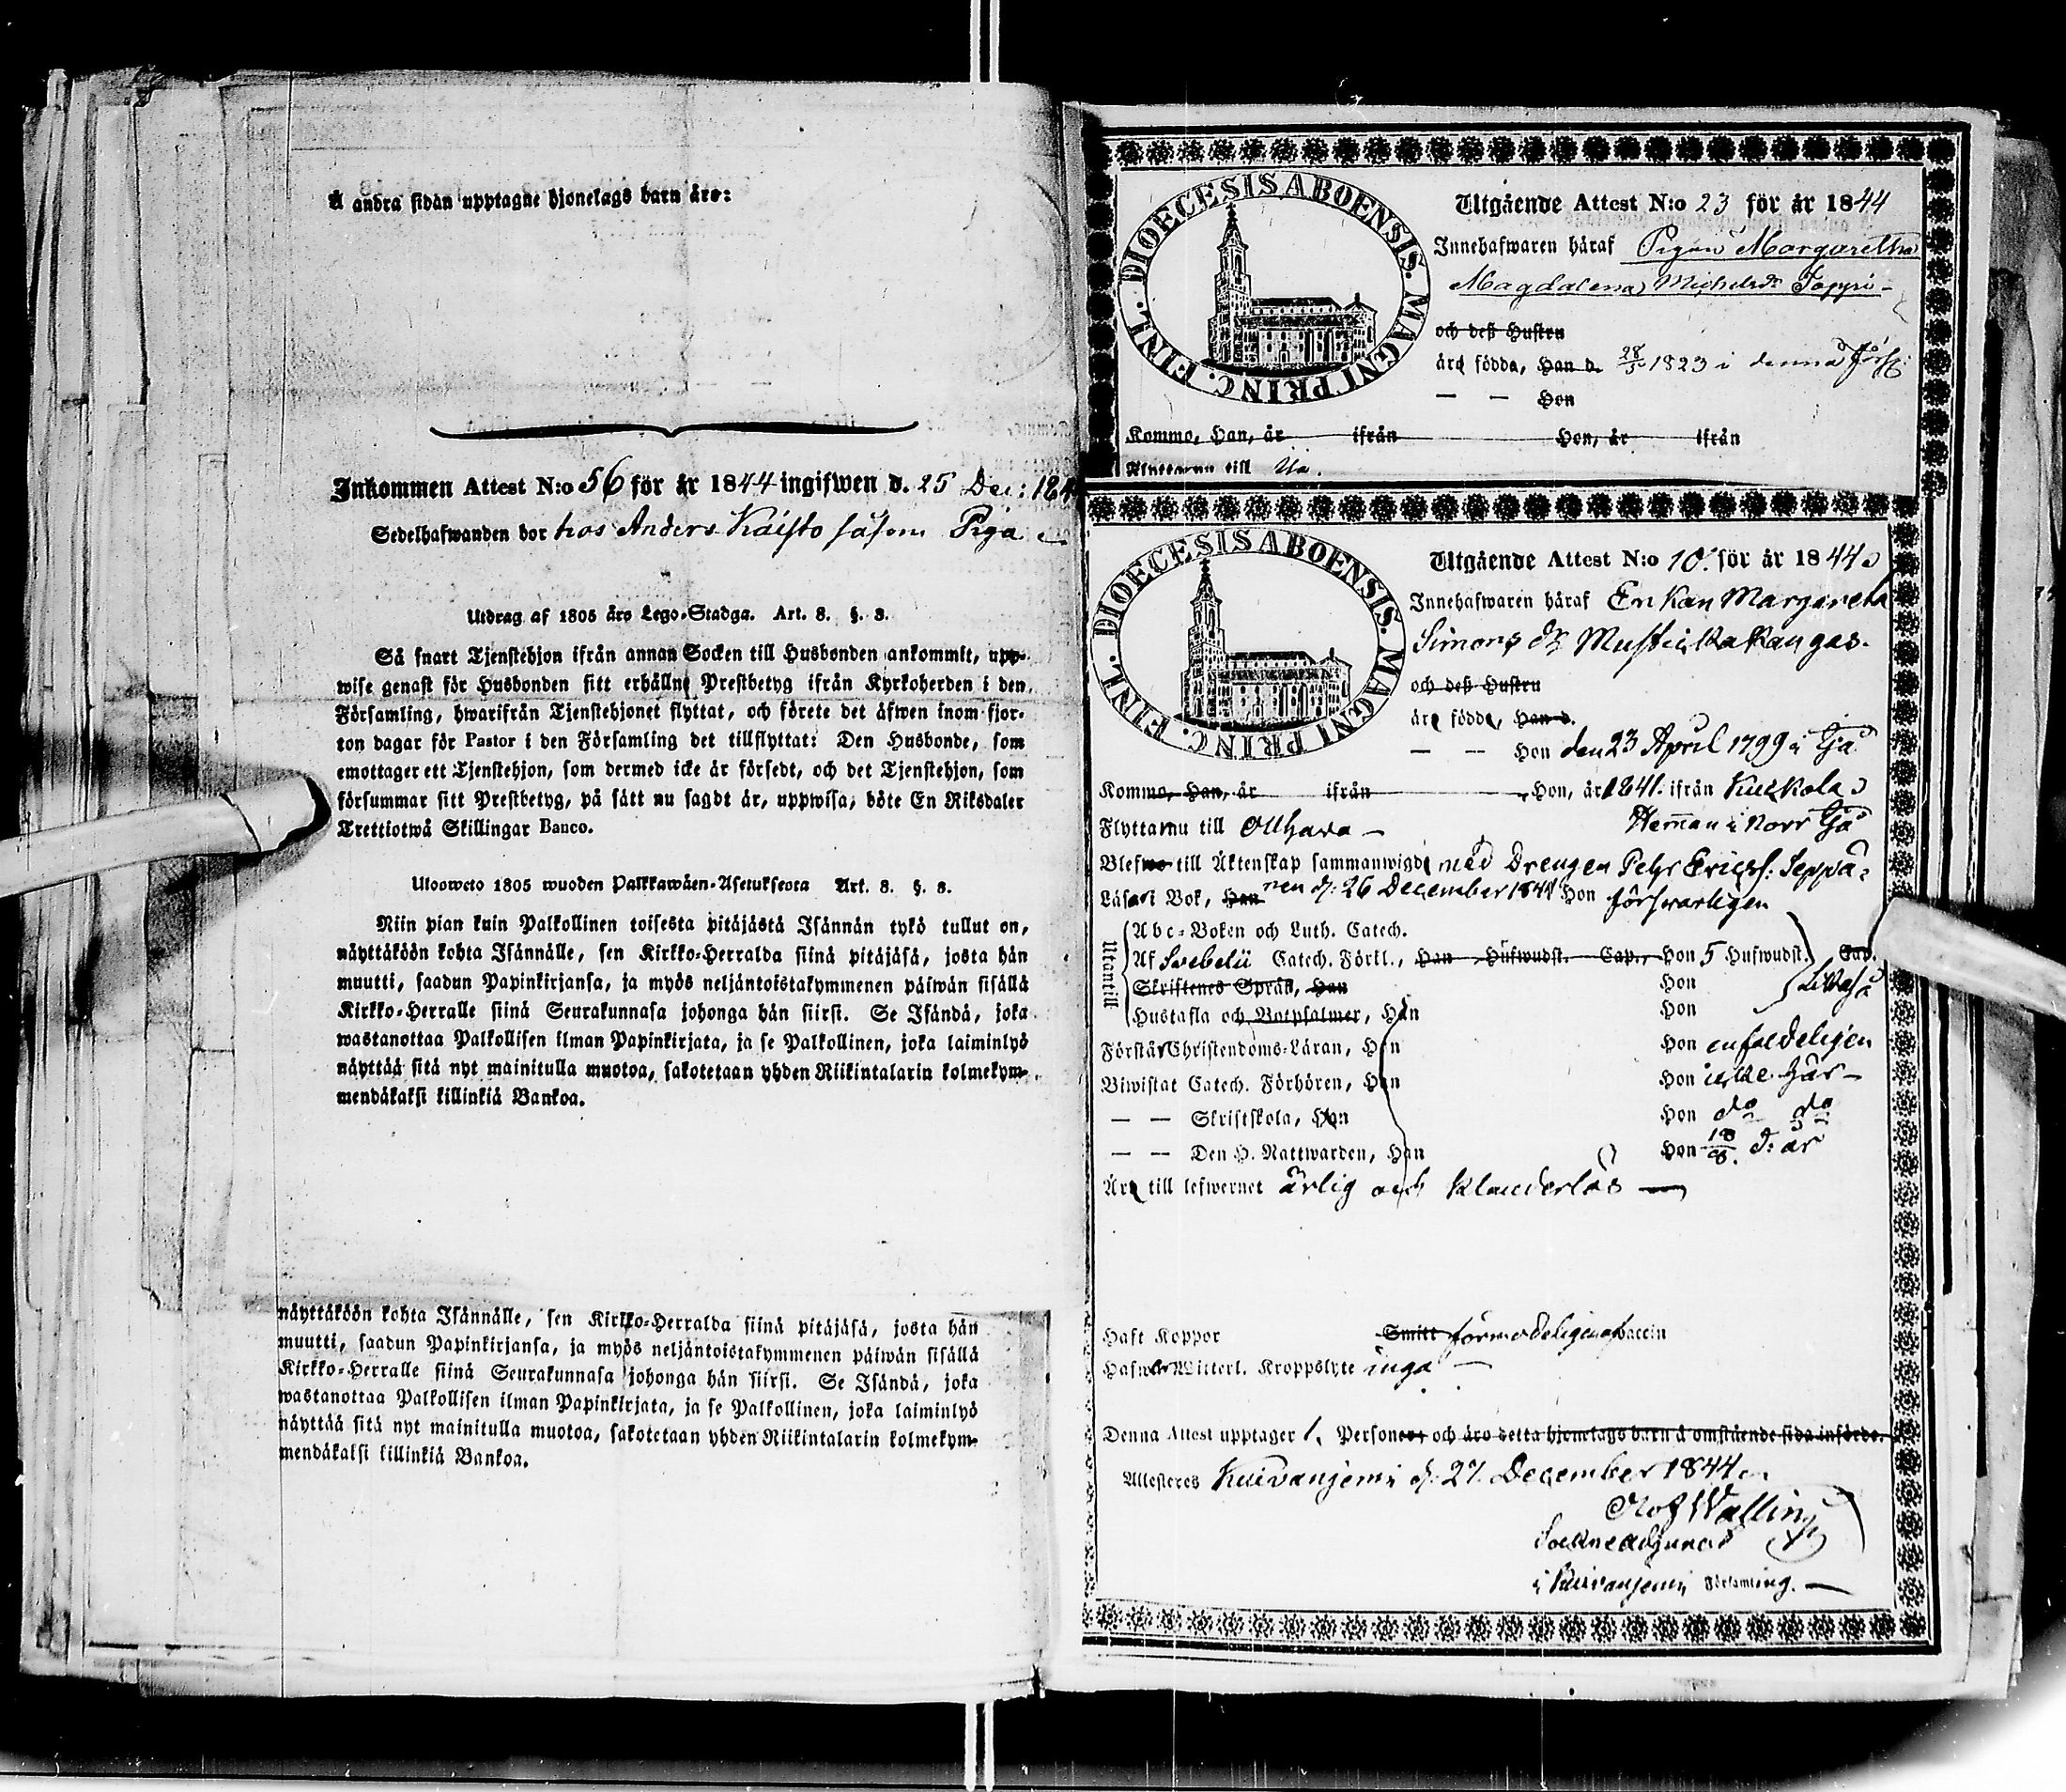 Å andra sidan upptagne hjonelags barn äro:
Inkommen Attest N:o 56 för år 1844 ingifwen d. 25 Dec: 184
Sedelhafwanden bor hos Anders Kaisto såsom Piga
Utdrag af 1805 års Lego-Stadga. Art. 8. §. 3.
Så snart Tjenstehjon ifrån annan Socken till Husbonden ankommit, upp-
wise genast för Husbonden sitt erhållne Prestbetyg ifrån Kyrkoherden i den
Församling, hwarifrån Tjenstehjonet flyttat, och förete det äfwen inom fjor-
ton dagar för Pastor i den Församling det tillflyttat: Den Husbonde, som
emottager ett Tjenstehjon, som dermed icke är försedt, och det Tjenstehjon, som
försummar sitt Prestbetyg, på sätt nu sagdt är, uppwisa, böte En Riksdaler
Trettiotwå Skillingar Banco.
Ulosweto 1805 wuoden Palkkawäen-Asetuksesta Art. 8. §. 3.
Niin pian kuin Palkollinen toisesta pitäjästä Isännän tykö tullut on,
näyttäköön kohta Isännälle, sen Kirkko-Herralda siinä pitäjäsä, josta hän
muutti, saadun Papinkirjansa, ja myös neljäntoistakymmenen päiwän sisällä
Kirkko-Herralle siinä Seurakunnasa johonga hän siirsi. Se Isändä, joka
wastanottaa Palkollisen ilman Papinkirjata, ja se Palkollinen, joka laiminlyö
näyttää sitä nyt mainitulla muotoa, sakotetaan yhden Riikintalarin kolmekym-
mendäkaksi killinkiä Bankoa.
näyttäköön kohta Isännälle, sen Kirkko-Herralda siinä pitäjäsä, josta hän
muutti, saadun Papinkirjansa, ja myös neljäntoistakymmenen päiwän sisällä
Kirkko-Herralle siinä Seurakunnasa johonga hän siirsi. Se Isändä, joka
wastanottaa Palkollisen ilman Papinkirjata, ja se Palkollinen, joka laiminlyö
näyttää sitä nyt mainitulla muotoa, sakotetaan yhden Riikintalarin kolmekym-
mendäkaksi killinkiä Bankoa.
DIOECESIS ABOENSIS. MAGNI PRINC. FINL.
Utgående Attest N:o 23 för år 1844
Innehafwaren häraf Pigan Margaretha
Magdalena Michelsdr
och deß Hustru
äro födde, Han d. 28/5 1823 i denna Förs:
— — Hon
Kommo, Han, år ifrån Hon, år ifrån
Flyttarnu till
DIOECESIS ABOENSIS. MAGNI PRINC. FINL.
Utgående Attest N:o 10. för år 1844
Innehafwaren häraf Enkan Margareta
Simons dr Mustikkakangas.
och deß Hustru
äro födde, Han d.
— — Hon den 23 April 1799 i Ijå
Kommo, Han, år ifrån Hon, år 1841. ifrån Kuckola
Flyttarnu till Olhava — Heman i Norr Ijå
Blefwo till Äktenskap sammanwigde med Drengen Pehr Ericss: Seppä-
Läsa i Bok, Han nen d: 26 December 1841 Hon försvarligen
Utantill
Abc-Boken och Luth. Catech.
Af Svebelii Catech. Förkl., Han Hufwudst. Cap., Hon 5 Hufwudst. Cap.
Skriftenes Språk, Han Hon
Hustafla och Botpsalmer, Han Hon
Förstår Christendoms-Läran, Han Hon enfaldeligen
Biwistat Catech. Förhören, Han Hon icke här —
— — Skriftskola, Han Hon do do
— — Den H. Nattwarden, Han Hon 18/8. d: år
Äro till lefwernet ärlig och klanderlös —
Haft Koppor Smitt förmodeligen af vaccin
Hafwa Witterl. Kroppslyte inga —
Denna Attest upptager 1. Personer och äro detta hjonelags barn å omstående sida införde.
Attesteres Kuivaniemi d: 27. December 1844
Wallin
Sockneadjunct
i Kuivaniemi Församling. —